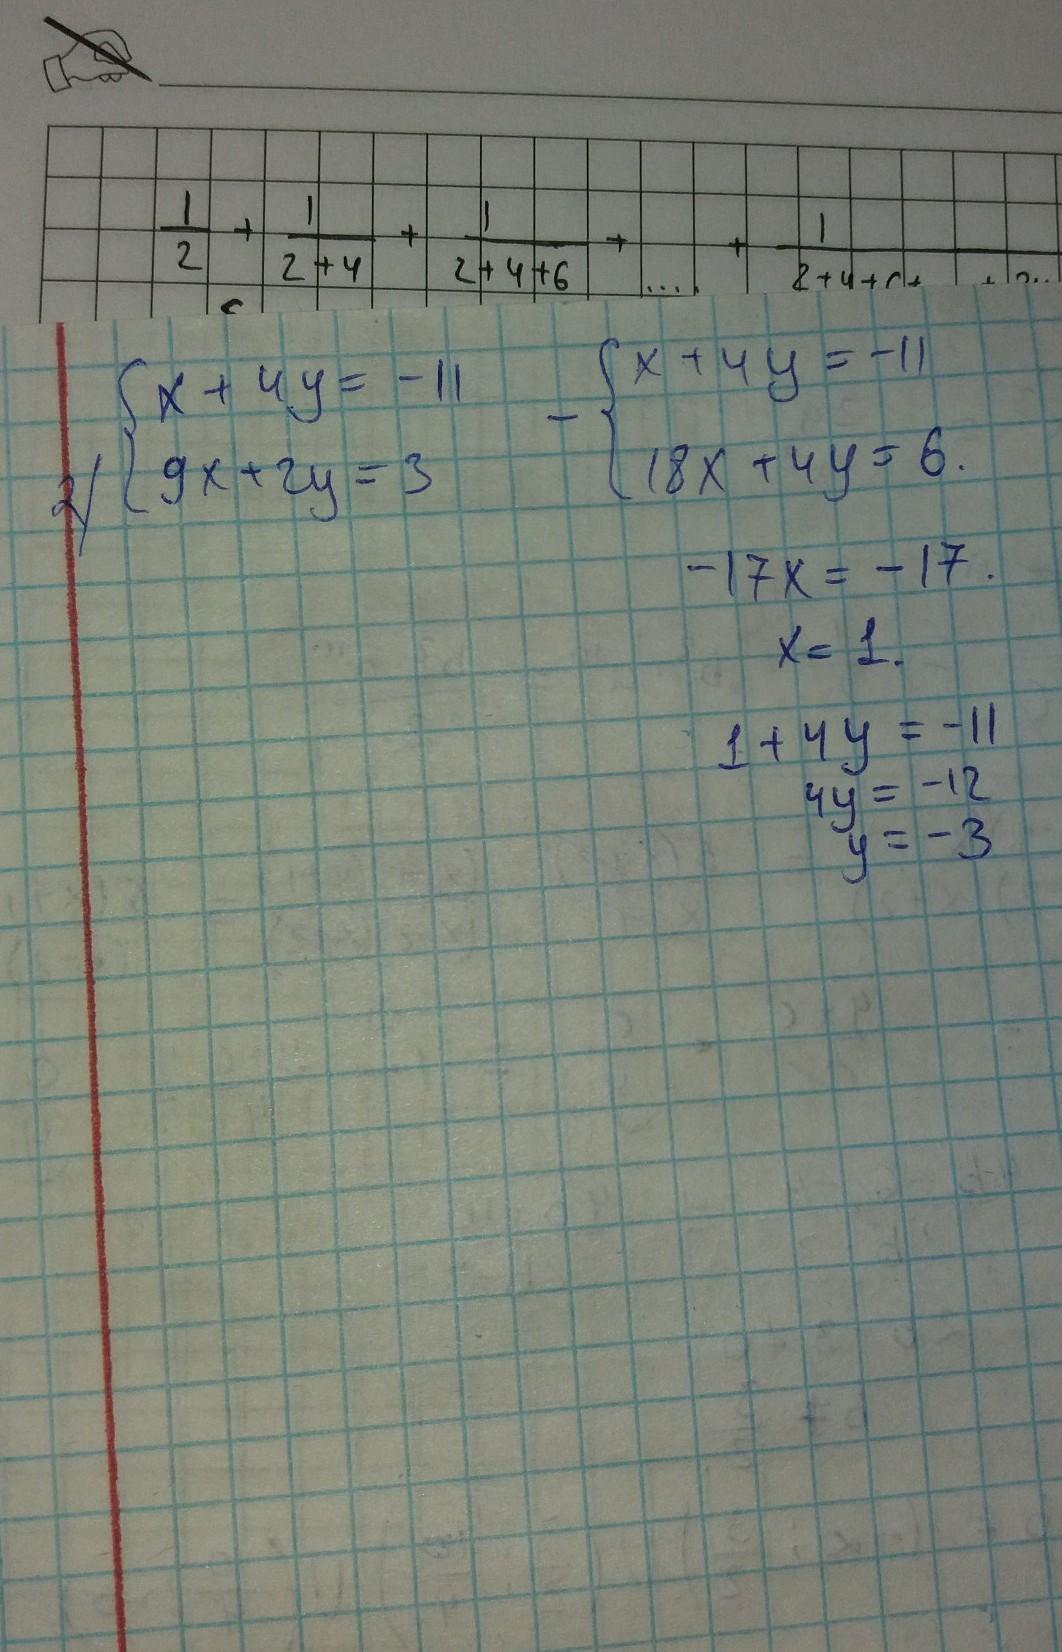 1/2 + 1/(2+4) + 1/(2+4+6) + .... + 1/(2+4+
2) { x + 4y = -11
9x + 2y = 3
- { x + 4y = -11
18x + 4y = 6.
-17x = -17.
x = 1.
1 + 4y = -11
4y = -12
y = -3